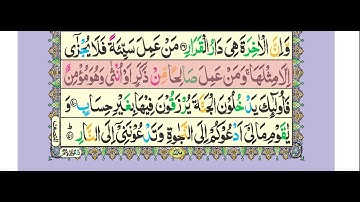 وَاِنَّ الْاٰخِرَةَ هِیَ دَارُ الْقَرَارِ ۝ مَنْ عَمِلَ سَیِّئَةً فَلَا یُجْزٰۤی
اِلَّا مِثْلَهَا ۚ وَمَنْ عَمِلَ صَالِحًا مِّنْ ذَكَرٍ اَوْ اُنْثٰی وَهُوَ مُؤْمِنٌ
فَاُولٰٓىِٕكَ یَدْخُلُوْنَ الْجَنَّةَ یُرْزَقُوْنَ فِیْهَا بِغَیْرِ حِسَابٍ ۝ وَ
یٰقَوْمِ مَا لِیْۤ اَدْعُوْكُمْ اِلَی النَّجٰوةِ وَتَدْعُوْنَنِیْۤ اِلَی النَّارِ ۝